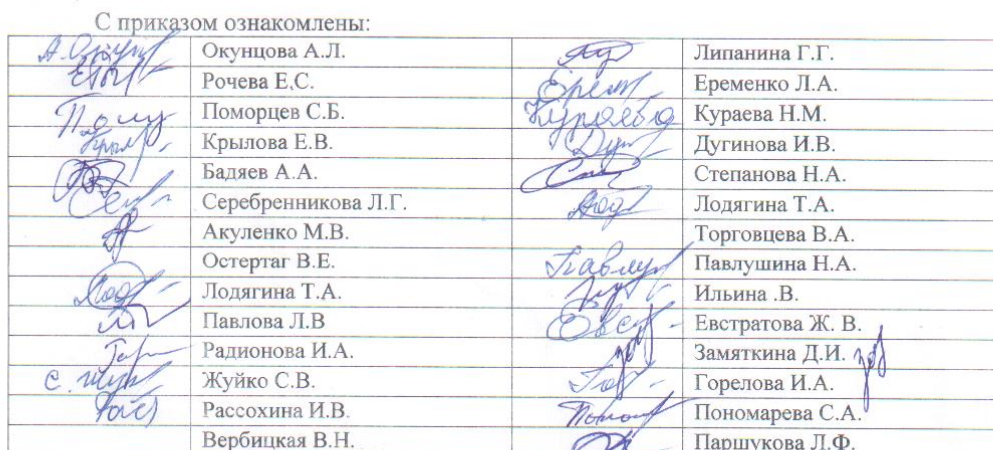 С приказом ознакомлены:
Окунцова А.Л. Липанина Г.Г.
Рочева Е.С. Ерем Еременко Л.А.
Поморцев С.Б. Кураева Кураева Н.М.
Крылова Е.В. Дугинова И.В.
Бадяев А.А. Степанова Н.А.
Серебренникова Л.Г. Лодягина Т.А.
Акуленко М.В. Торговцева В.А.
Остертаг В.Е. Павлуш Павлушина Н.А.
Лодягина Т.А. Ильина .В.
Павлова Л.В Евстратова Ж. В.
Радионова И.А. Замяткина Д.И.
Жуйко С.В. Горелова И.А.
Рассохина И.В. Пономарева С.А.
Вербицкая В.Н. Паршукова Л.Ф.